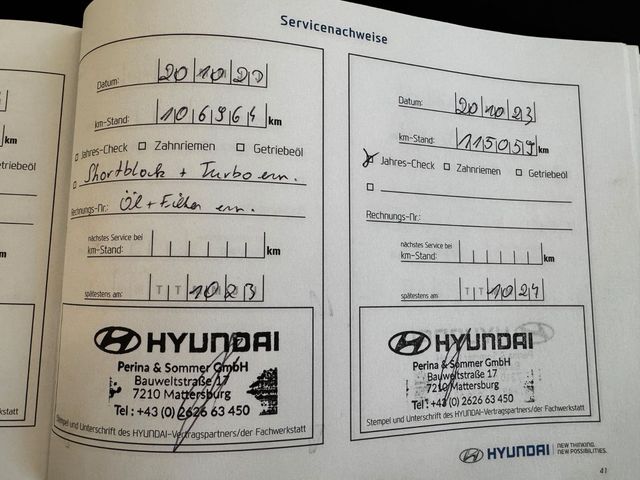 Servicenachweise
Datum: 20 10 2
km-Stand: 106964 km
Jahres-Check Zahnriemen Getriebeöl
Shortblock + Turbo ern.
Rechnungs-Nr.: Öl + Filter ern.
nächstes Service bei
km-Stand: km
spätestens am: T T 10 23
HYUNDAI
Perina & Sommer GmbH
Bauweltstraße 17
7210 Mattersburg
Tel : +43 (0) 2626 63 450
Stempel und Unterschrift des HYUNDAI-Vertragspartners/der Fachwerkstatt
Datum: 20 10 23
km-Stand: 115059 km
x Jahres-Check Zahnriemen Getriebeöl
Rechnungs-Nr.:
nächstes Service bei
km-Stand: km
spätestens am: T T 10 24
HYUNDAI
Perina & Sommer GmbH
Bauweltstraße 17
7210 Mattersburg
Tel : +43 (0) 2626 63 450
Stempel und Unterschrift des HYUNDAI-Vertragspartners/der Fachwerkstatt
HYUNDAI
NEW THINKING.
NEW POSSIBILITIES.
41
km
etriebeöl
m
kstatt